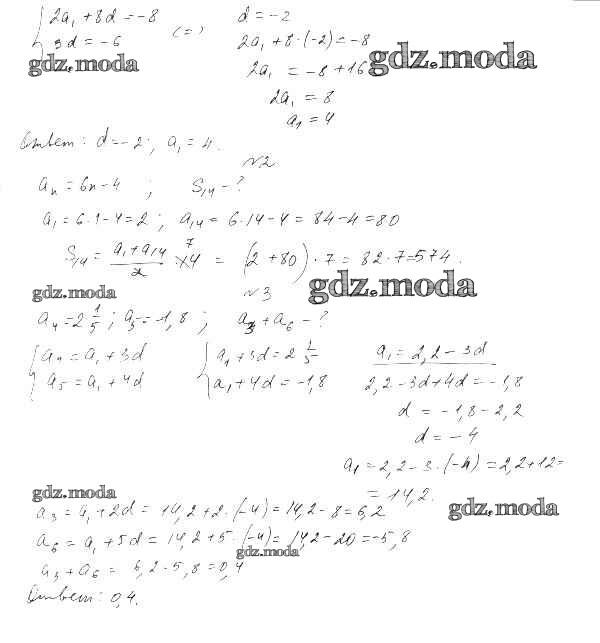 2a₁ + 8d = -8 (=) d = -2
3d = -6 2a₁ + 8·(-2) = -8
gdz.moda
gdz.moda
2a₁ = -8 + 16
2a₁ = 8
a₁ = 4
Ответ: d = -2; a₁ = 4.
№2
aₙ = 6n - 4 ; S₁₄ - ?
a₁ = 6·1 - 4 = 2 ; a₁₄ = 6·14 - 4 = 84 - 4 = 80
S₁₄ = (a₁ + a₁₄)/2 × 14 7 = (2 + 80)·7 = 82·7 = 574.
gdz.moda
№3
gdz.moda
a₄ = 2 1/5 ; a₅ = -1,8 ; a₃ + a₆ - ?
a₄ = a₁ + 3d a₁ + 3d = 2 1/5 a₁ = 2,2 - 3d
a₅ = a₁ + 4d a₁ + 4d = -1,8 2,2 - 3d + 4d = -1,8
d = -1,8 - 2,2
d = -4
a₁ = 2,2 - 3·(-4) = 2,2 + 12 =
= 14,2.
gdz.moda
gdz.moda
a₃ = a₁ + 2d = 14,2 + 2·(-4) = 14,2 - 8 = 6,2
a₆ = a₁ + 5d = 14,2 + 5·(-4) = 14,2 - 20 = -5,8
gdz.moda
a₃ + a₆ = 6,2 - 5,8 = 0,4
Ответ: 0,4.